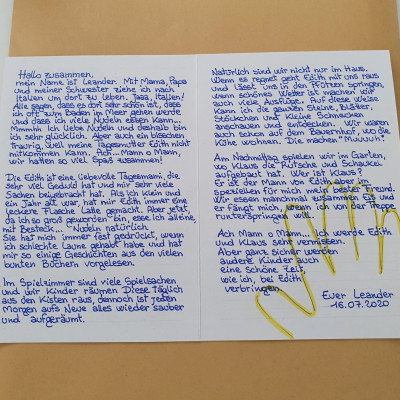 Hallo zusammen,
mein Name ist Leander. Mit Mama, Papa
und meiner Schwester ziehe ich nach
Italien um dort zu leben. Jaaa, Italien!
Alle sagen, dass es dort sehr schön ist, dass
ich oft zum Baden im Meer gehen werde
und dass ich viele Nudeln essen kann....
Mmmmh ich liebe Nudeln und deshalb bin
ich sehr glücklich. Aber auch ein bisschen
traurig, weil meine Tagesmutter Edith nicht
mitkommen kann. Ach... Mann o Mann,
wir hatten so viel Spaß zusammen!
Die Edith ist eine liebevolle Tagesmami, die
sehr viel Geduld hat und mir sehr viele
Sachen beigebracht hat. Als ich klein und
ein Jahr alt war, hat mir Edith immer eine
leckere Flasche Milch gemacht. Aber jetzt,
da ich so groß geworden bin, esse ich alleine,
mit Besteck.... Nudeln natürlich
Sie hat mich immer fest gedrückt, wenn
ich schlechte Laune gehabt habe und hat
mir so einige Geschichten aus den vielen
bunten Büchern vorgelesen.
Im Spielzimmer sind viele Spielsachen
und wir Kinder räumen Diese täglich
aus den Kisten raus, dennoch ist jeden
Morgen aufs Neue alles wieder sauber
und aufgeräumt.
Natürlich sind wir nicht nur im Haus.
Wenn es regnet geht Edith mit uns raus
und lässt uns in den Pfützen springen,
wenn schönes Wetter ist machen wir
auch viele Ausflüge. Auf diese Weise
kann ich die ganzen Steine, Blätter,
Stöckchen und kleine Schnecken
anschauen und entdecken. Wir waren
auch schon auf dem Bauernhof, wo die
Kühe wohnen. Die machen "Muuuuh"
Am Nachmittag spielen wir im Garten,
wo Klaus die Rutsche und Schaukel
aufgebaut hat. Wer ist Klaus?
Er ist der Mann von Edith, aber im
Speziellen für mich mein bester Freund.
Wir essen manchmal zusammen Eis und
er fängt mich, wenn ich von der Treppe
runterspringen will.
Ach Mann o Mann.... ich werde Edith
und Klaus sehr vermissen.
Aber ganz sicher werden
andere Kinder auch
eine schöne Zeit,
wie ich, bei Edith
verbringen.
Euer Leander
16.07.2020